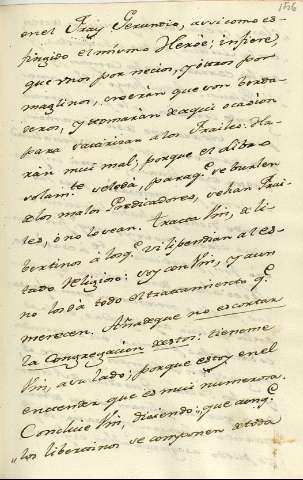 en el Fray Gerundio, assi como es
fingido el mismo Heroe; infiere,
que unos por necios, y otros por
malinos, creeràn que son verda
deros, y tomaràn de aqui ocasion
para satirizar a los Frailes. Ha-
ràn mui mal; porque el Libro
solam.te se le dà, para q.e se burlen
de los malos Predicadores, sean Frai-
les, ò no lo sean. Tratta Vm, de li-
bertinos à los q.e vilipendian al es-
tado Religioso: Voy con Vm, y aun
no los dà todo el trattamiento q.e
merecen. Añade que no es cortar
la Congregacion de estos: tieneme
Vm, a su lado; porque estoy en el
entender que es mui numerosa.
Concluie Vm, diciendo: que aunq.e
„los libertinos se componen de toda